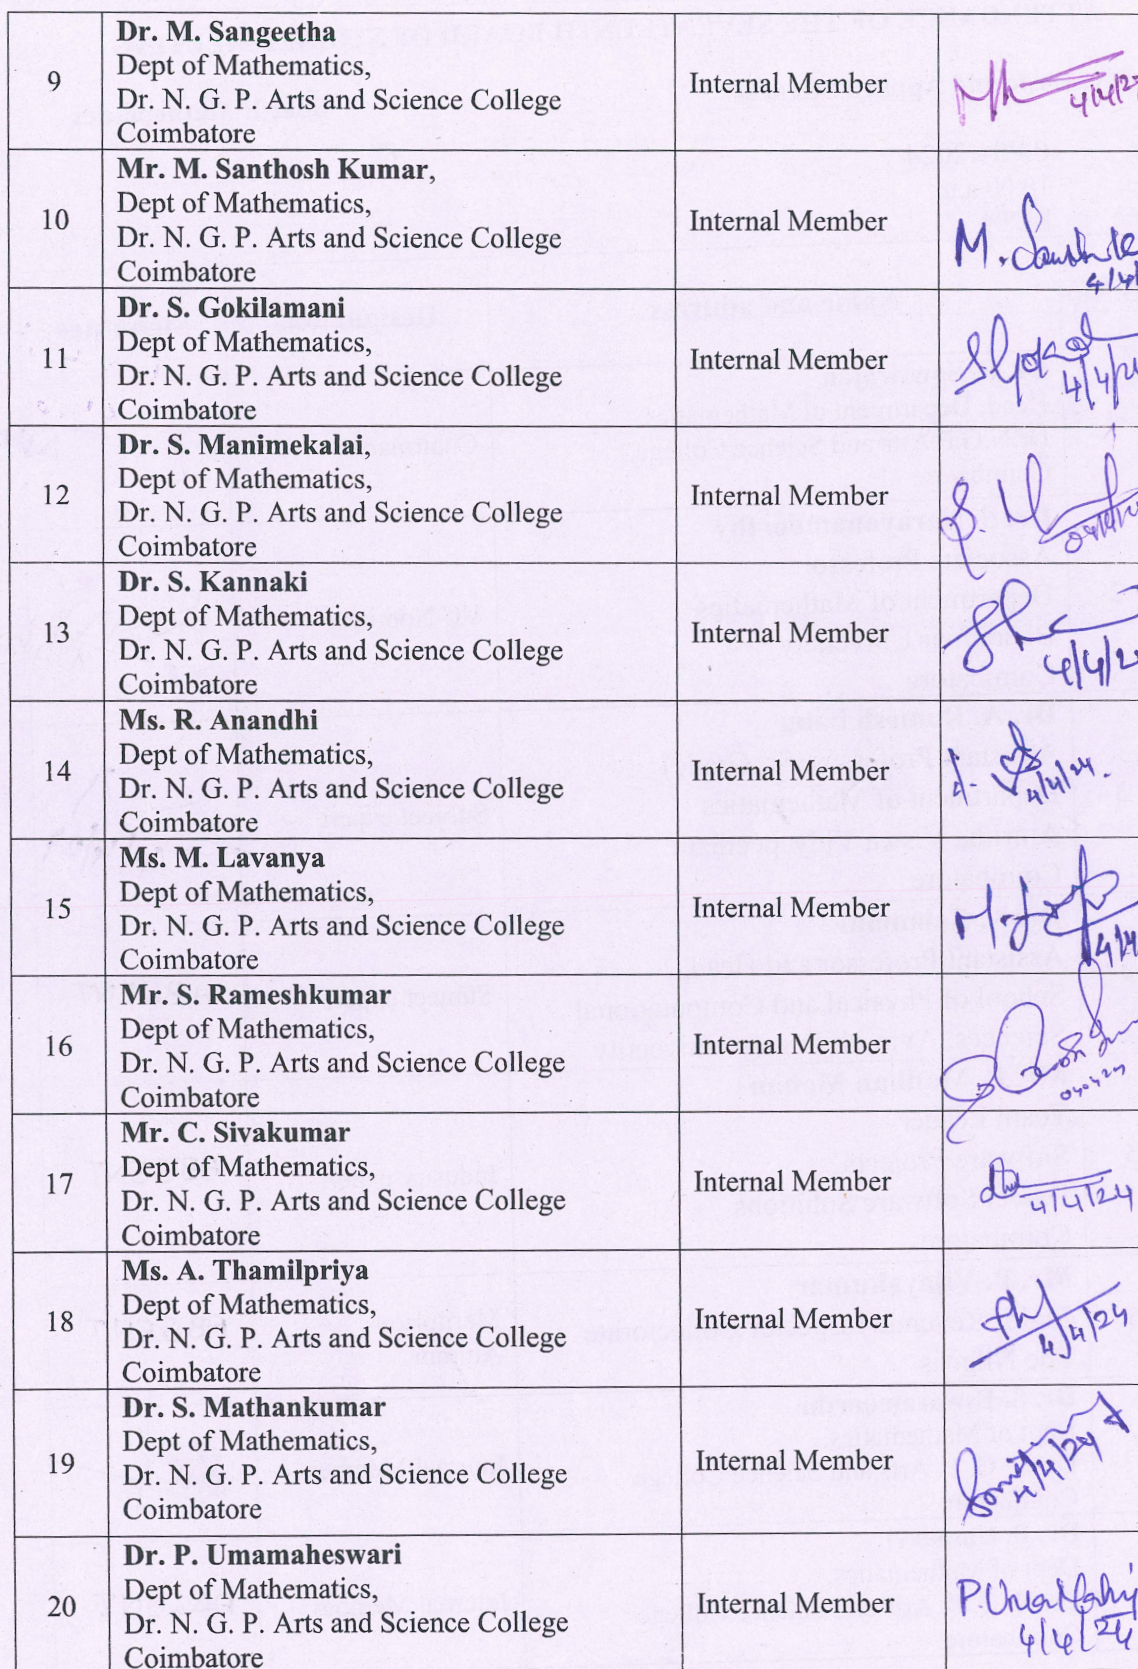 9
Dr. M. Sangeetha
Dept of Mathematics,
Dr. N. G. P. Arts and Science College
Coimbatore
Internal Member
10
Mr. M. Santhosh Kumar,
Dept of Mathematics,
Dr. N. G. P. Arts and Science College
Coimbatore
Internal Member
M.
11
Dr. S. Gokilamani
Dept of Mathematics,
Dr. N. G. P. Arts and Science College
Coimbatore
Internal Member
12
Dr. S. Manimekalai,
Dept of Mathematics,
Dr. N. G. P. Arts and Science College
Coimbatore
Internal Member
13
Dr. S. Kannaki
Dept of Mathematics,
Dr. N. G. P. Arts and Science College
Coimbatore
Internal Member
14
Ms. R. Anandhi
Dept of Mathematics,
Dr. N. G. P. Arts and Science College
Coimbatore
Internal Member
4/4/24.
15
Ms. M. Lavanya
Dept of Mathematics,
Dr. N. G. P. Arts and Science College
Coimbatore
Internal Member
16
Mr. S. Rameshkumar
Dept of Mathematics,
Dr. N. G. P. Arts and Science College
Coimbatore
Internal Member
17
Mr. C. Sivakumar
Dept of Mathematics,
Dr. N. G. P. Arts and Science College
Coimbatore
Internal Member
4/4/24
18
Ms. A. Thamilpriya
Dept of Mathematics,
Dr. N. G. P. Arts and Science College
Coimbatore
Internal Member
4/4/24
19
Dr. S. Mathankumar
Dept of Mathematics,
Dr. N. G. P. Arts and Science College
Coimbatore
Internal Member
4/4/24
20
Dr. P. Umamaheswari
Dept of Mathematics,
Dr. N. G. P. Arts and Science College
Coimbatore
Internal Member
4/4/24